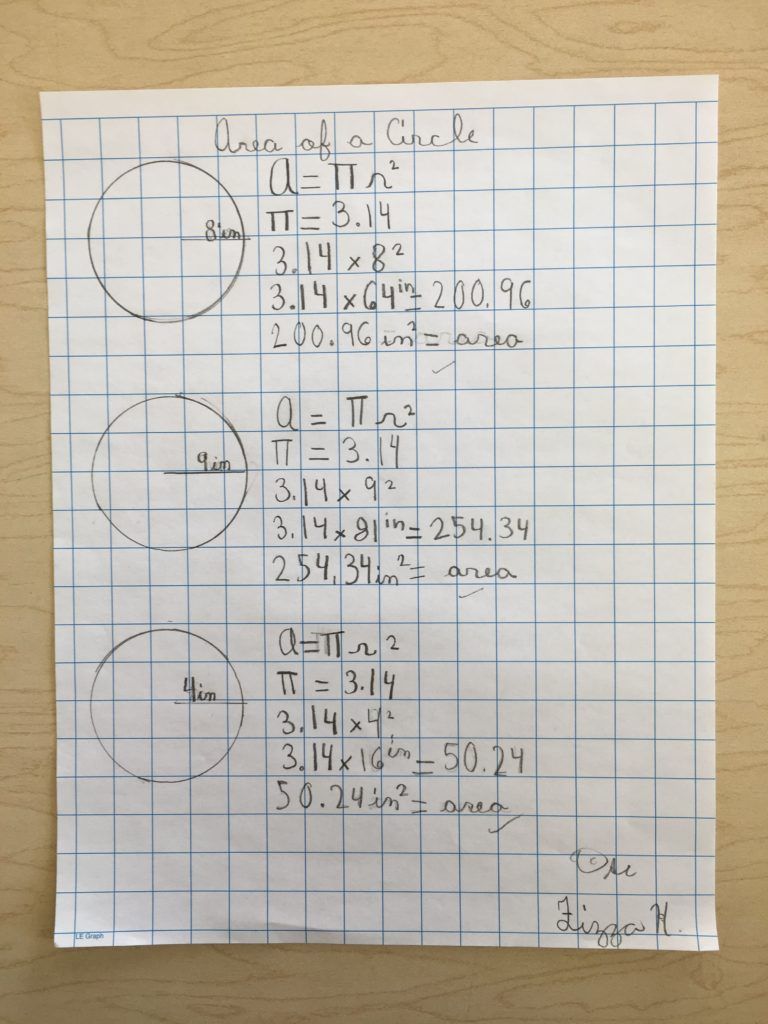 Area of a Circle
8in
A = π r²
π = 3.14
3.14 × 8²
3.14 × 64ⁱⁿ = 200.96
200.96 in² = area
9in
A = π r²
π = 3.14
3.14 × 9²
3.14 × 81ⁱⁿ = 254.34
254.34in² = area
4in
A = π r²
π = 3.14
3.14 × 4²
3.14 × 16ⁱⁿ = 50.24
50.24in² = area
LE Graph